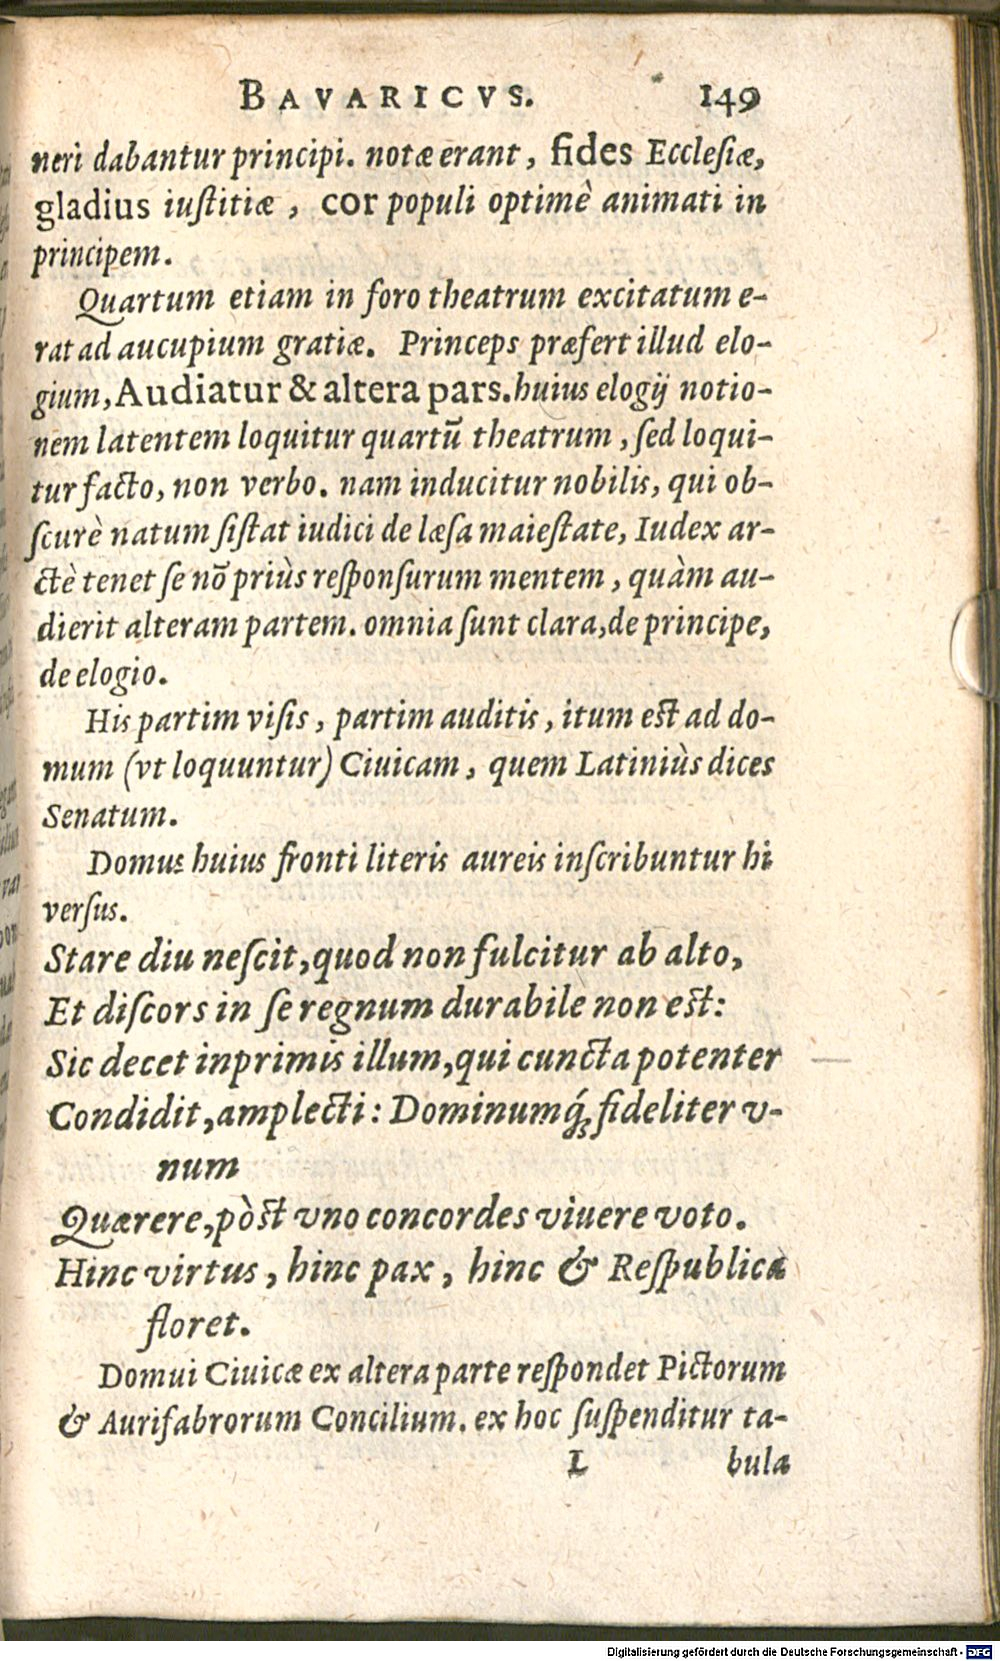 BAVARICVS. 149
neri dabantur principi. notæ erant, fides Ecclesiæ,
gladius iuſtitiæ, cor populi optimè animati in
principem.
Quartum etiam in foro theatrum excitatum e-
rat ad aucupium gratiæ. Princeps præfert illud elo-
gium, Audiatur & altera pars. huius elogij notio-
nem latentem loquitur quartũ theatrum, ſed loqui-
tur facto, non verbo. nam inducitur nobilis, qui ob-
ſcurè natum ſiſtat iudici de læſa maieſtate, Iudex ar-
ctè tenet ſe nõ priùs reſponſurum mentem, quàm au-
dierit alteram partem. omnia ſunt clara, de principe,
de elogio.
His partim viſis, partim auditis, itum eſt ad do-
mum (vt loquuntur) Ciuicam, quem Latiniùs dices
Senatum.
Domus huius fronti literis aureis inſcribuntur hi
verſus.
Stare diu neſcit, quod non fulcitur ab alto,
Et diſcors in ſe regnum durabile non eſt:
Sic decet inprimis illum, qui cuncta potenter
Condidit, amplecti: Dominumq́; fideliter v-
num
Quærere, pòſt vno concordes viuere voto.
Hinc virtus, hinc pax, hinc & Reſpublica
floret.
Domui Ciuicæ ex altera parte reſpondet Pictorum
& Aurifabrorum Concilium. ex hoc ſuſpenditur ta-
L bula
Digitalisierung gefördert durch die Deutsche Forschungsgemeinschaft - DFG